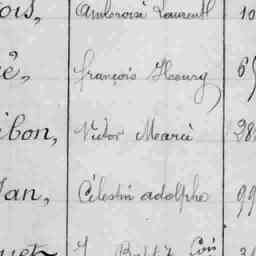 ois, Ambroise Laurent 10
ê, françois Henry 65
ibon, Victor Marié 28
Jan, Célestin adolphe 99
uet